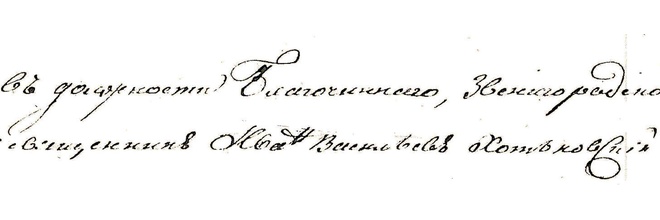 въ должности Благочиннаго, Звенигородско
священникъ Иванъ Васильевъ Хотьковскій